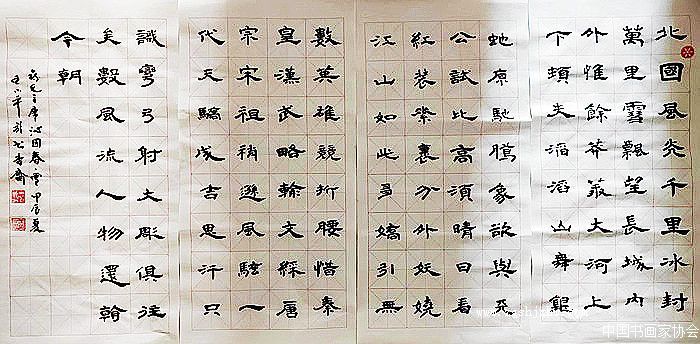 北國風光千里冰封
萬里雪飄望長城內
外惟餘莽莽大河上
下頓失滔滔山舞銀
蛇原馳臘象欲與天
公試比高須晴日看
紅裝素裹分外妖嬈
江山如此多嬌引無
數英雄競折腰惜秦
皇漢武略輸文綵唐
宗宋祖稍遜風騷一
代天驕成吉思汗只
識彎弓射大彫俱往
矣數風流人物還看
今朝
毛主席沁园春雪甲辰夏
中国书画家协会